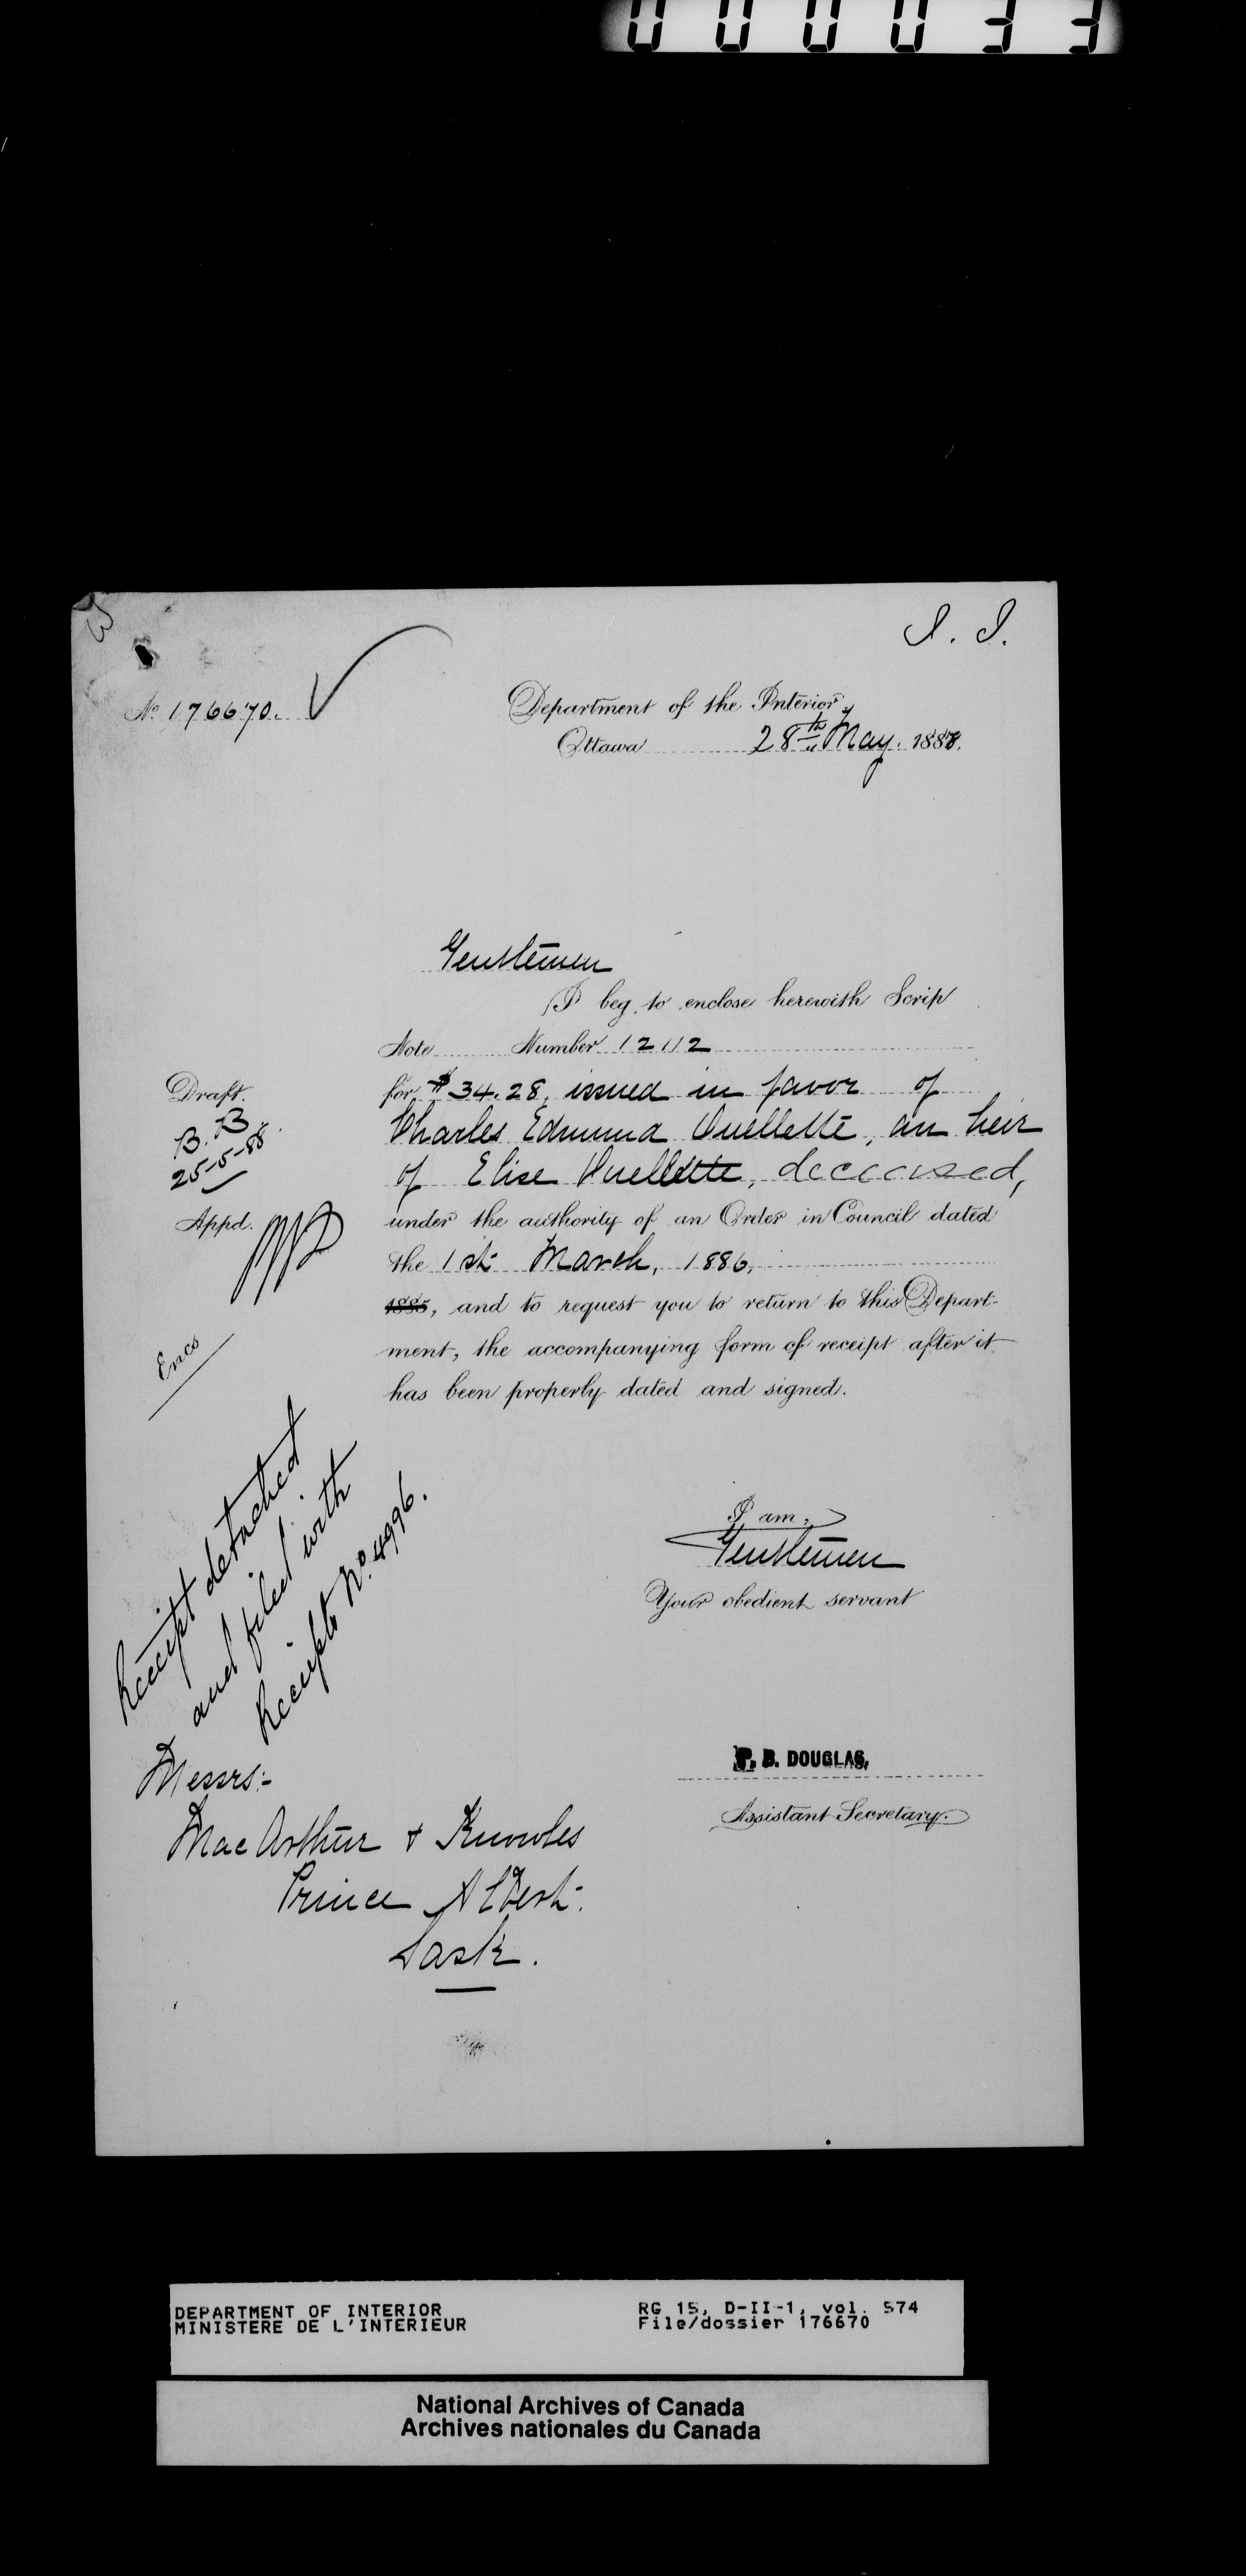 000033
I. I.
No 176670.
Department of the Interior,
Ottawa 28th May. 1888.
Gentlemen
I beg to enclose herewith Scrip
Note Number 12112
for $34.28, issued in favor of
Charles Edmund Ouellette, an heir
of Elise Ouellette, deceased,
under the authority of an Order in Council dated
the 1st March, 1886,
1885, and to request you to return to this Depart-
ment, the accompanying form of receipt after it
has been properly dated and signed.
Draft.
B. B.
25-5-88
Appd.
Encs
Receipt detached
and filed with
Receipts No. 4996.
I am,
Gentlemen
Your obedient servant
P. B. DOUGLAS,
Assistant Secretary.
Messrs:-
MacArthur & Knowles
Prince Albert.
Sask.
DEPARTMENT OF INTERIOR
MINISTERE DE L'INTERIEUR
RG 15, D-II-1, vol. 574
File/dossier 176670
National Archives of Canada
Archives nationales du Canada